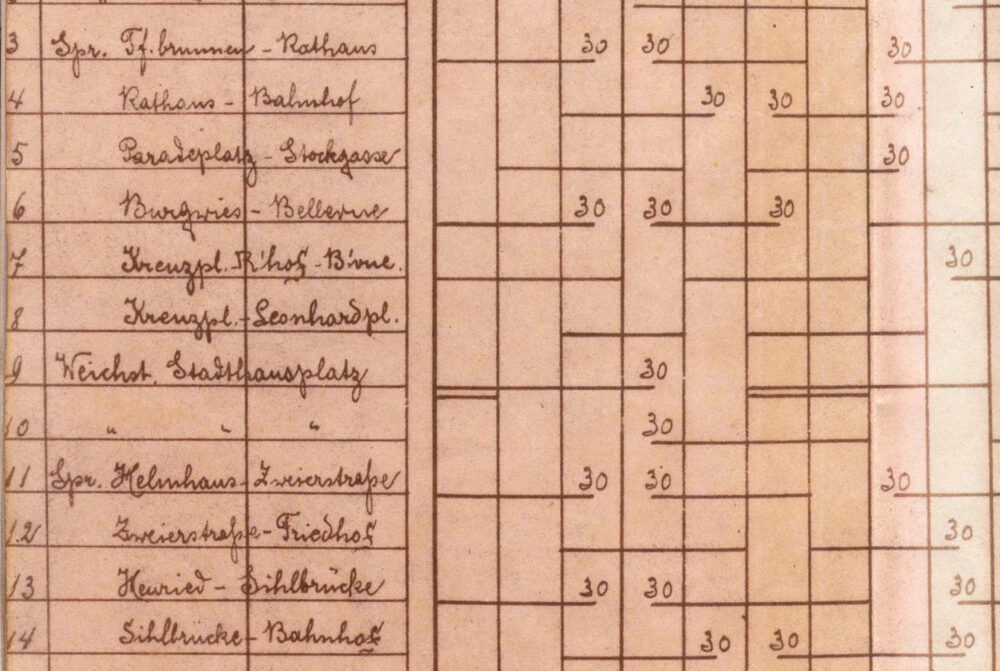 3 Spr. Tf. brunnen - Rathaus 30 30 30
4 Rathaus - Bahnhof 30 30 30
5 Paradeplatz - Stockgasse 30
6 Burgwies - Bellevue 30 30 30
7 Kreuzpl. R'hof - B'vue. 30
8 Kreuzpl. - Leonhardpl.
9 Weichst. Stadthausplatz 30
10 " " " 30
11 Spr. Helmhaus - Zweierstraße 30 30 30
12 Zweierstraße - Friedhof 30
13 Heuried - Sihlbrücke 30 30 30
14 Sihlbrücke - Bahnhof 30 30 30